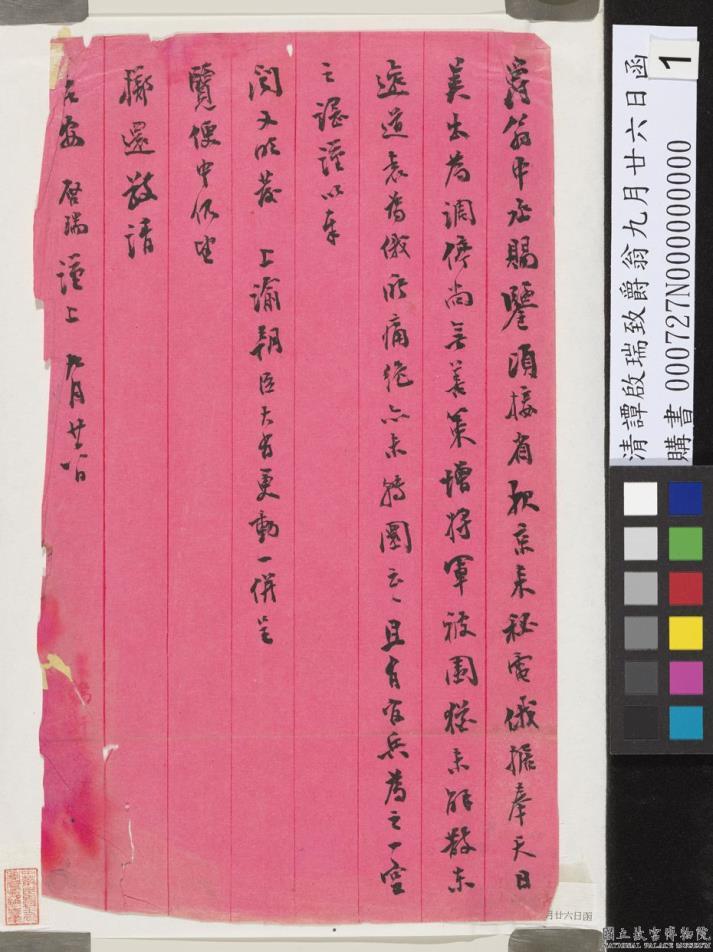 爵翁中丞賜鑒頃接省歌京來秘電俄據奉天日
美出為調停尚無善策增將軍被圍猶未解散東
邊道袁為俄所痛絕亦未轉圜云、且有官兵為之一空
之謠謹以奉
聞又昨發 上諭朝臣大有更動一併呈
覽便中仍望
擲還敬請
台安 啓瑞謹上 九月廿六日
清譚啟瑞致爵翁九月廿六日函
購書 000727N000000000
1
月廿六日函
國立故宮博物院
NATIONAL PALACE MUSEUM